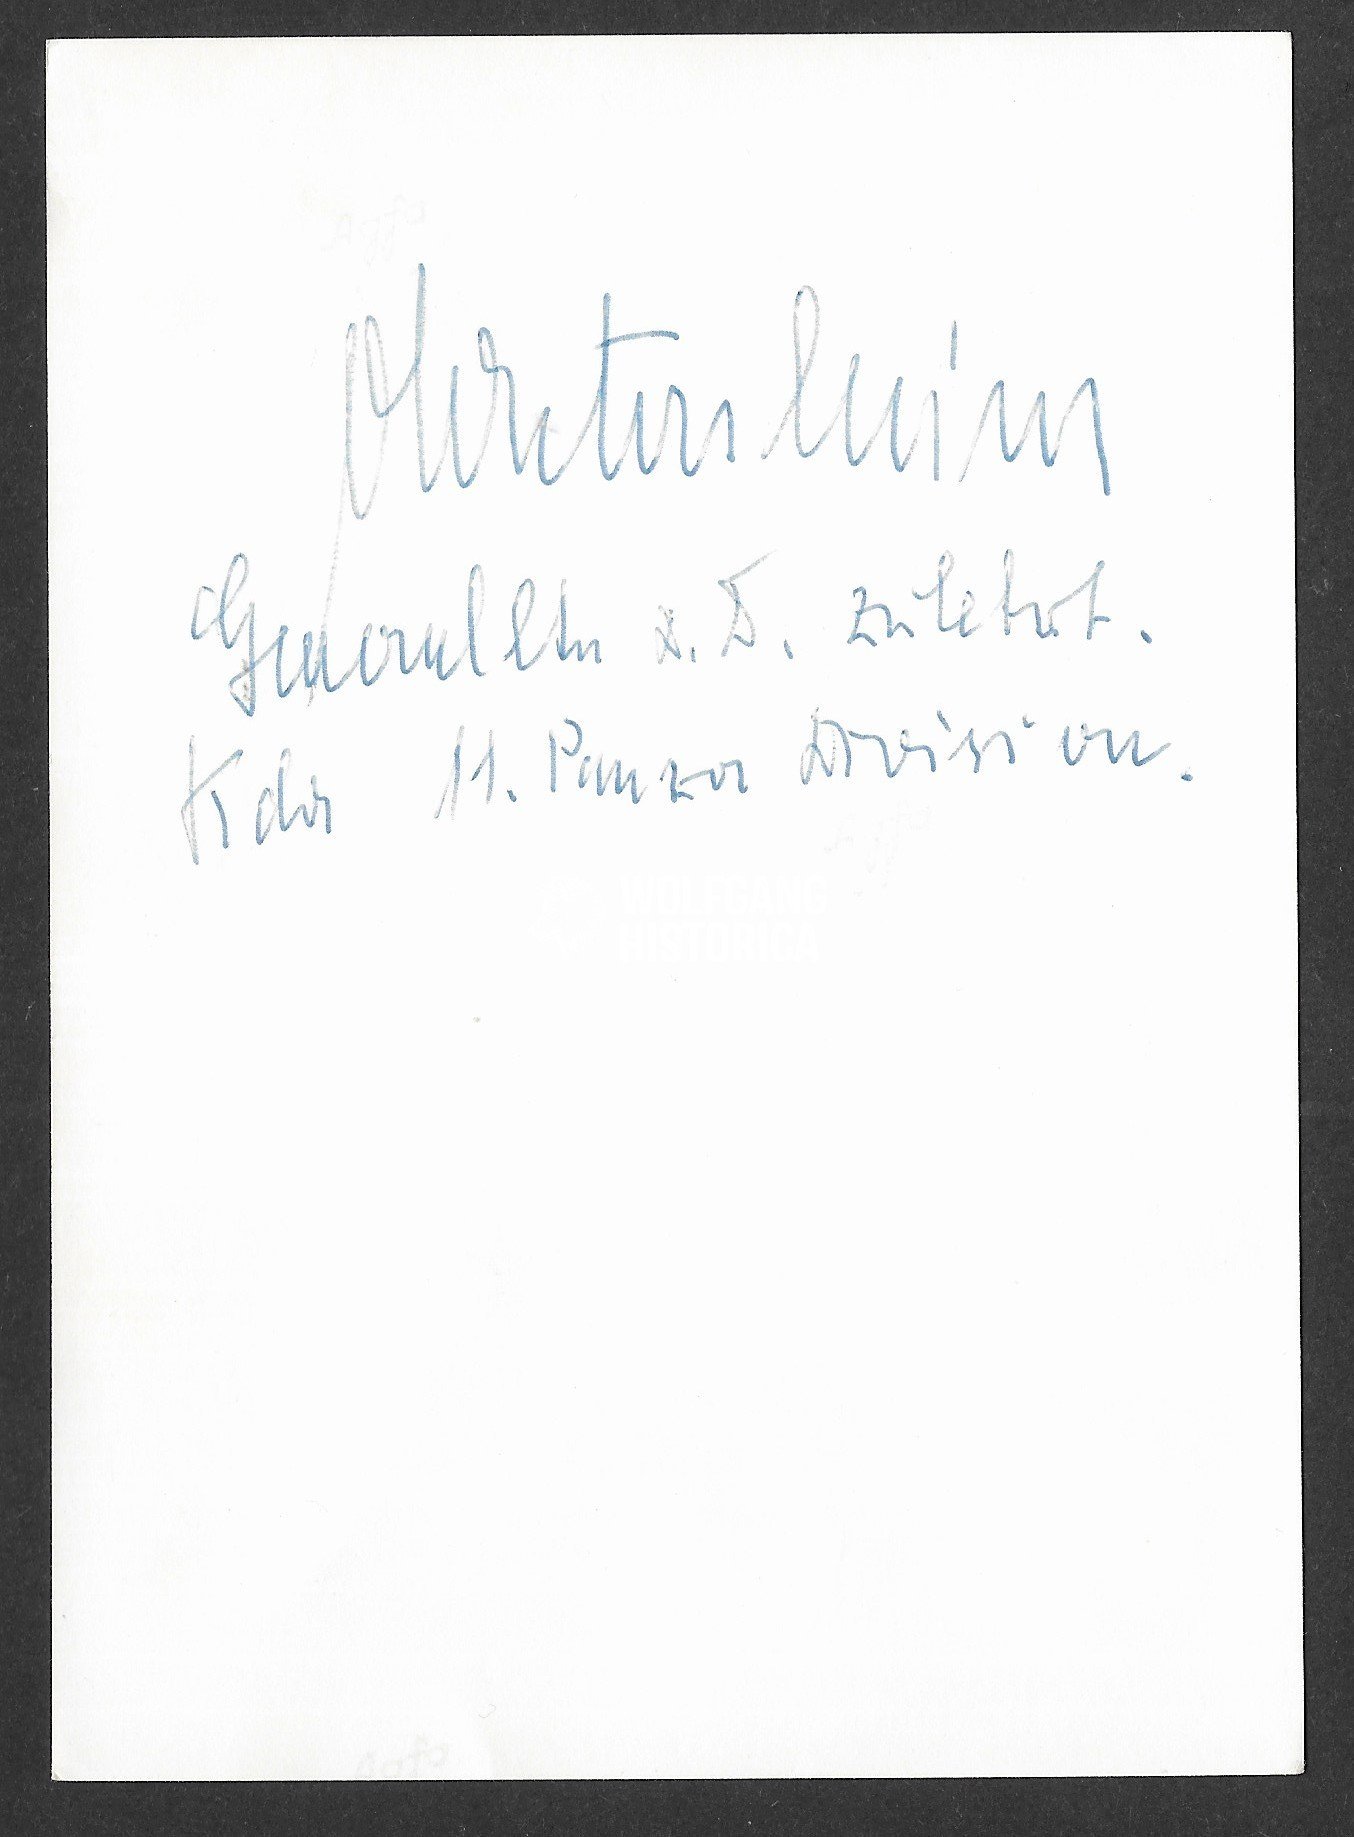 v Wietersheim
Generalltn a. D. zuletzt.
Kdr 11. Panzer Division.
WOLFGANG
HISTORICA